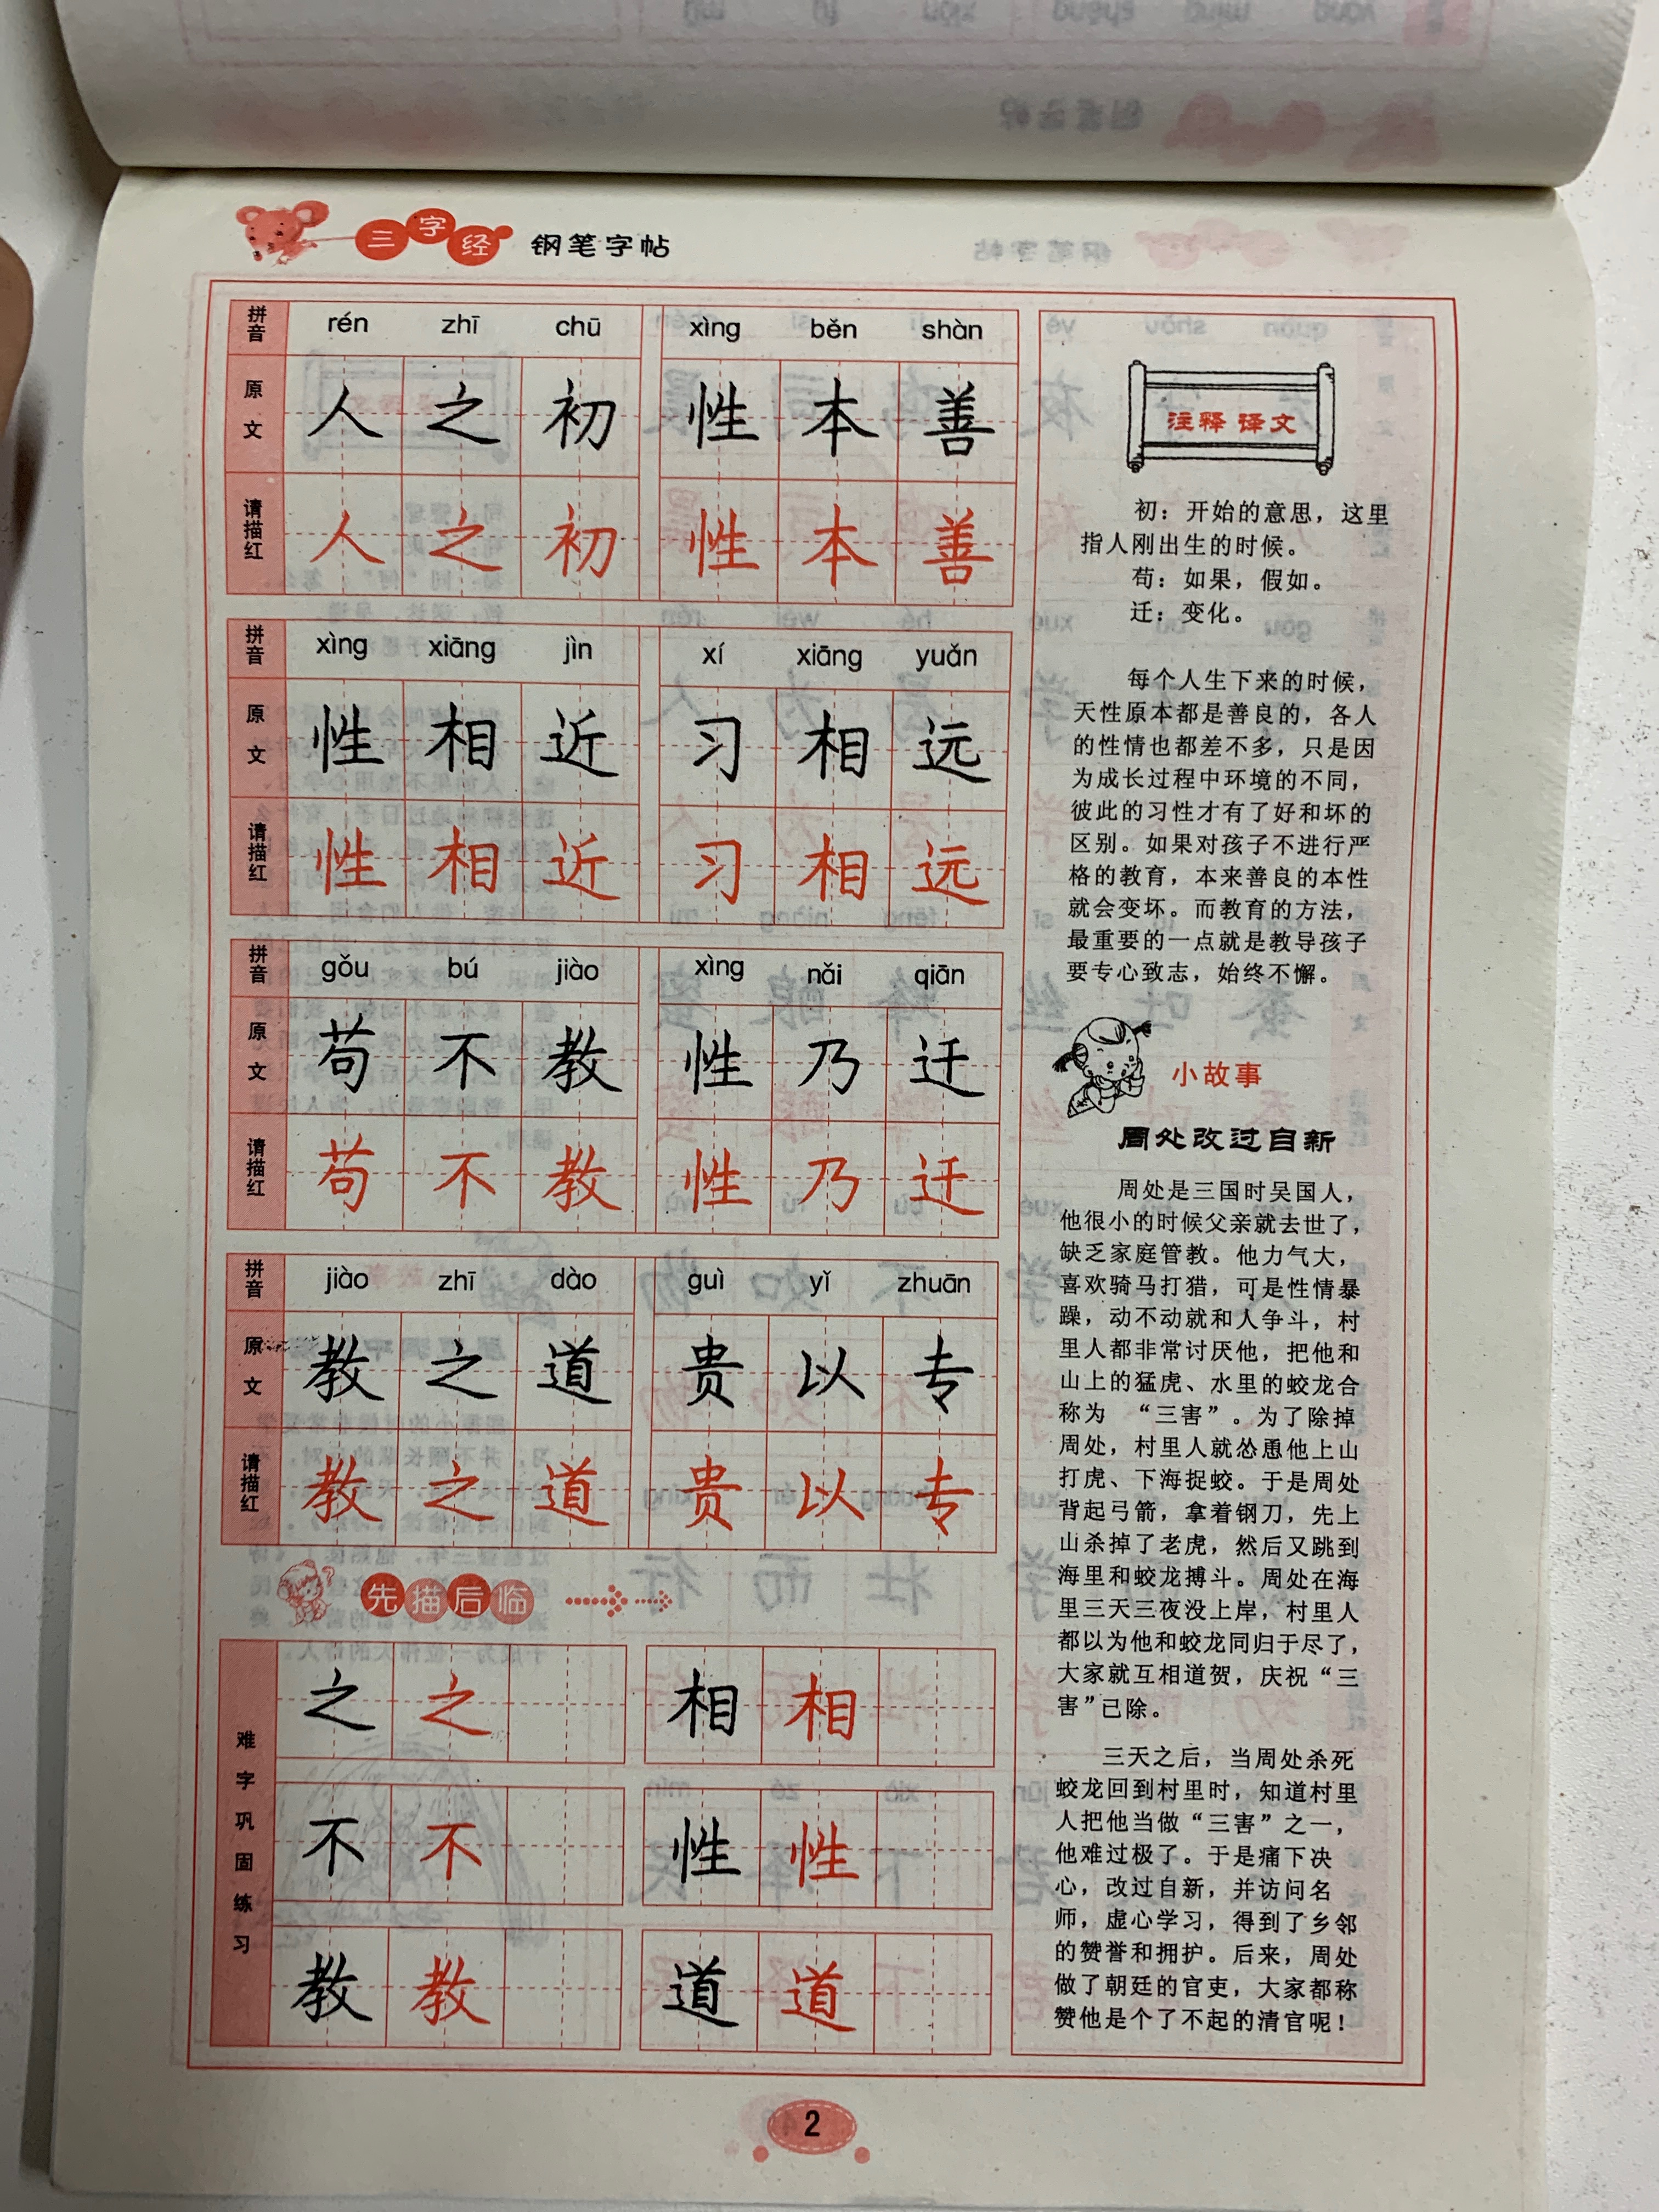 三字经 钢笔字帖
拼音 rén zhī chū xìng běn shàn
原文 人之初 性本善
请描红 人之初 性本善
拼音 xìng xiāng jìn xí xiāng yuǎn
原文 性相近 习相远
请描红 性相近 习相远
拼音 gǒu bú jiào xìng nǎi qiān
原文 苟不教 性乃迁
请描红 苟不教 性乃迁
拼音 jiào zhī dào guì yǐ zhuān
原文 教之道 贵以专
请描红 教之道 贵以专
先描后临
难字巩固练习
之 之 相 相
不 不 性 性
教 教 道 道
注释 译文
初：开始的意思，这里
指人刚出生的时候。
苟：如果，假如。
迁：变化。
每个人生下来的时候，
天性原本都是善良的，各人
的性情也都差不多，只是因
为成长过程中环境的不同，
彼此的习性才有了好和坏的
区别。如果对孩子不进行严
格的教育，本来善良的本性
就会变坏。而教育的方法，
最重要的一点就是教导孩子
要专心致志，始终不懈。
小故事
周处改过自新
周处是三国时吴国人，
他很小的时候父亲就去世了，
缺乏家庭管教。他力气大，
喜欢骑马打猎，可是性情暴
躁，动不动就和人争斗，村
里人都非常讨厌他，把他和
山上的猛虎、水里的蛟龙合
称为 “三害”。为了除掉
周处，村里人就怂恿他上山
打虎、下海捉蛟。于是周处
背起弓箭，拿着钢刀，先上
山杀掉了老虎，然后又跳到
海里和蛟龙搏斗。周处在海
里三天三夜没上岸，村里人
都以为他和蛟龙同归于尽了，
大家就互相道贺，庆祝“三
害”已除。
三天之后，当周处杀死
蛟龙回到村里时，知道村里
人把他当做“三害”之一，
他难过极了。于是痛下决
心，改过自新，并访问名
师，虚心学习，得到了乡邻
的赞誉和拥护。后来，周处
做了朝廷的官吏，大家都称
赞他是个了不起的清官呢！
2